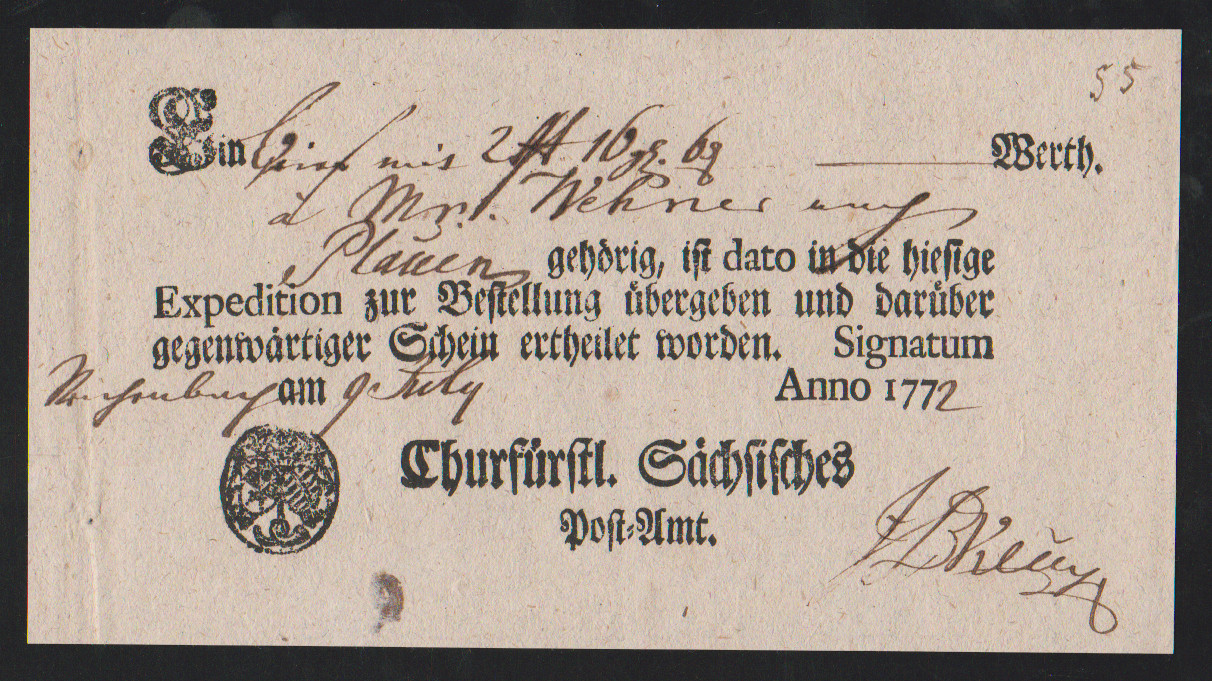 55
Ein Brief mit 2 16 gr. 6 Werth.
à Wehner
Plauen gehörig, ist dato in die hiesige
Expedition zur Bestellung übergeben und darüber
gegenwärtiger Schein ertheilet worden. Signatum
Reichenbach am 9 July Anno 1772
Churfürstl. Sächsisches
Post-Amt.